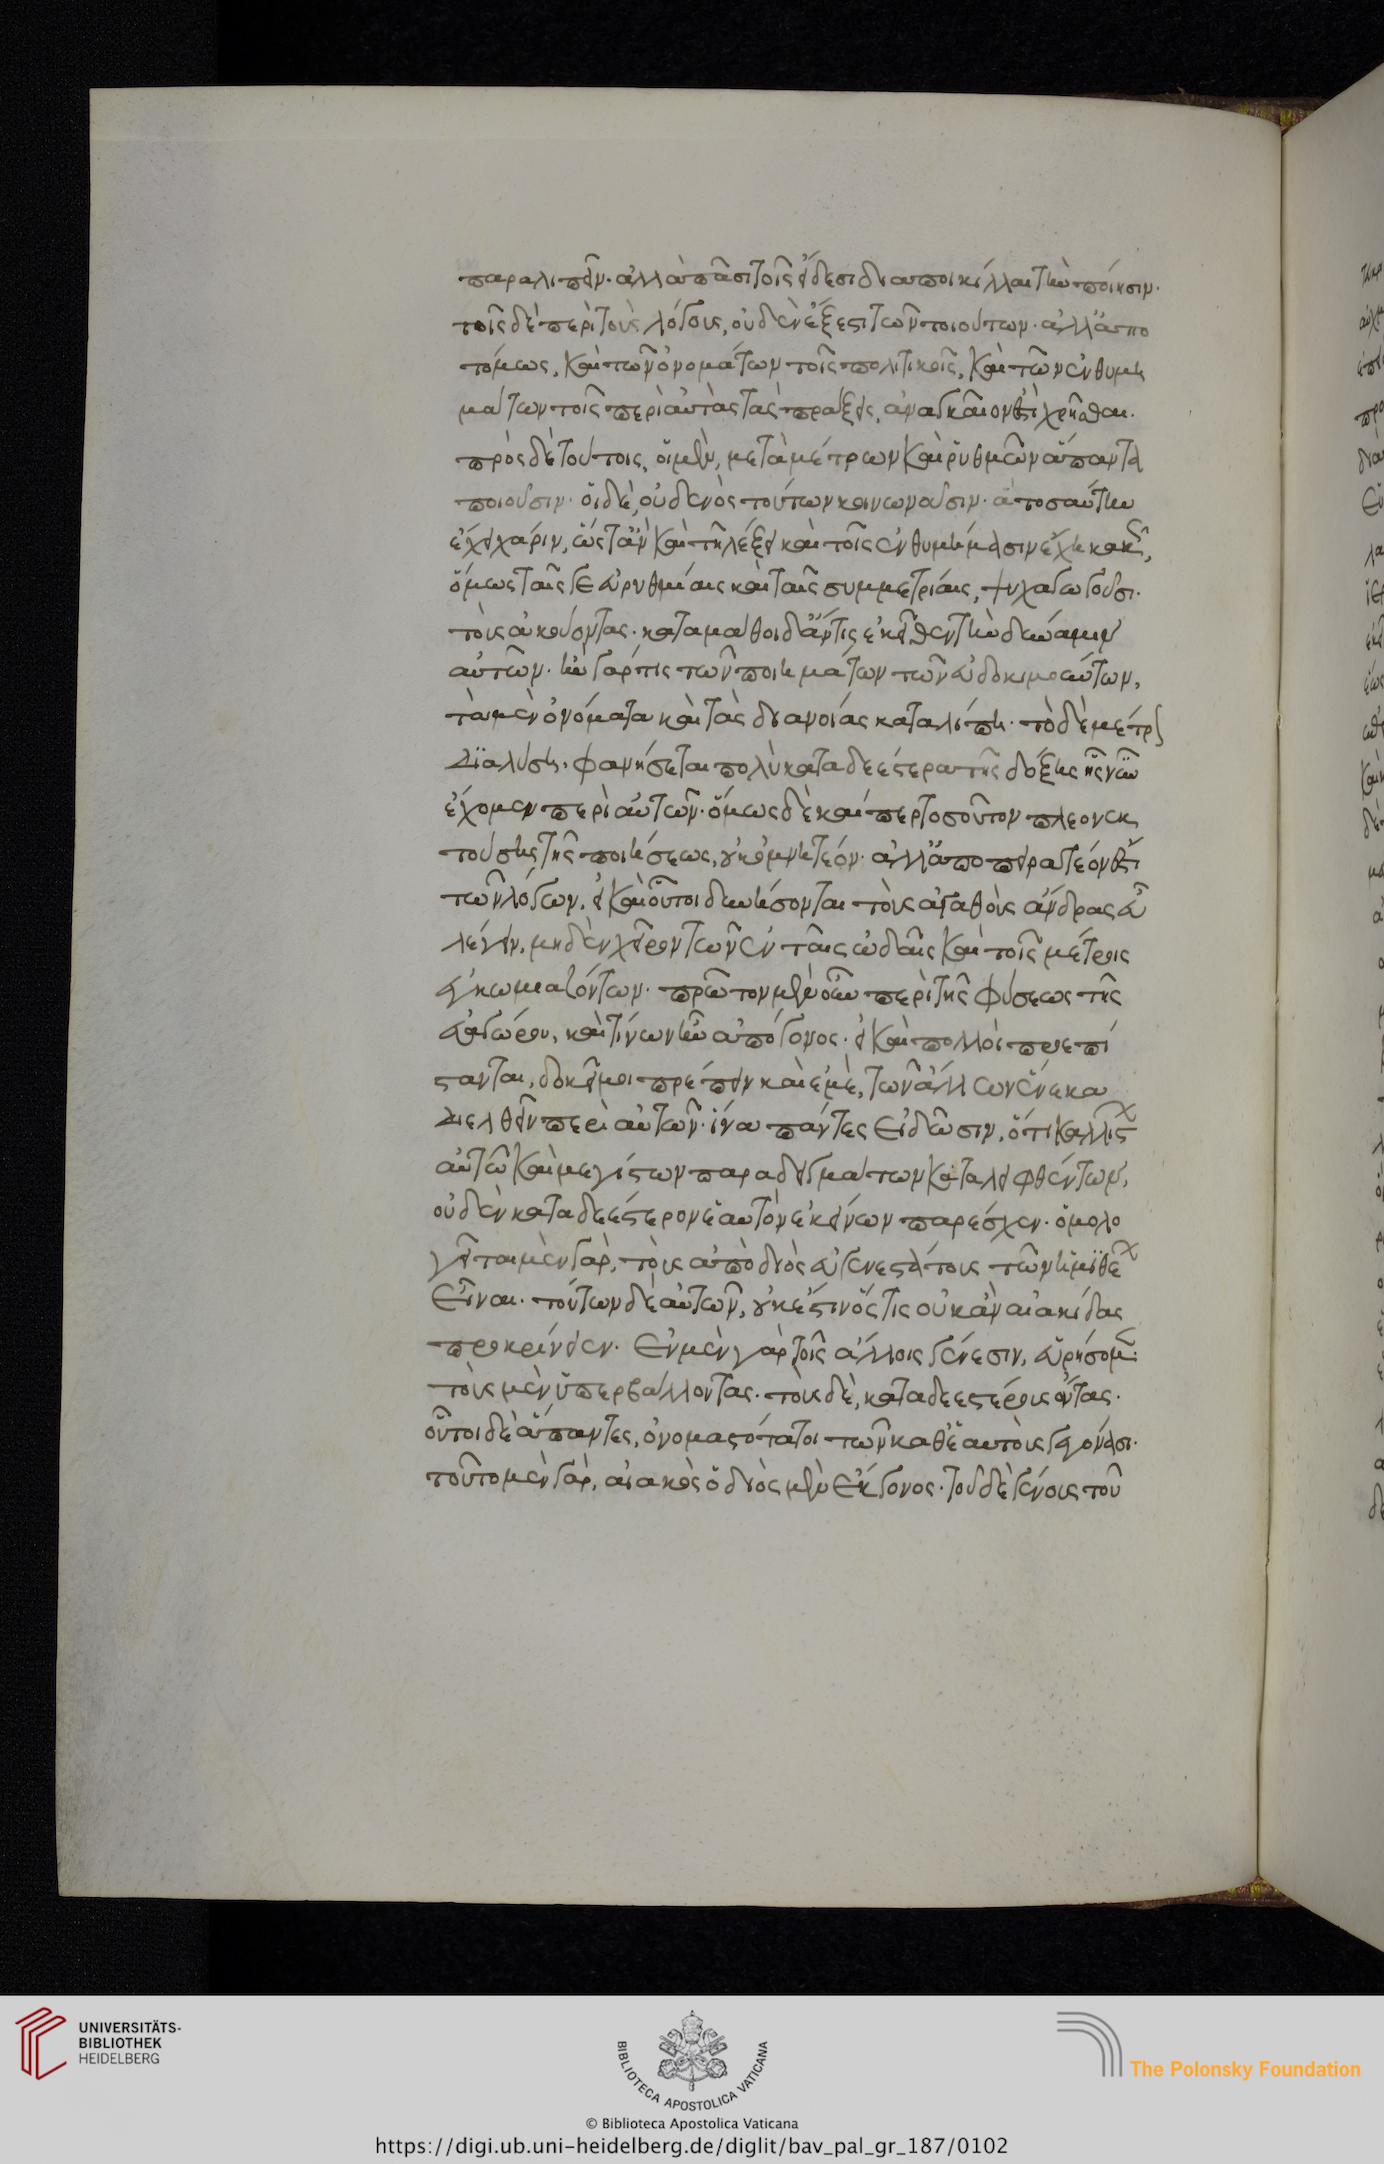 παραλιπεῖν· ἀλλὰ πᾶσι τοῖς εἴδεσι διαποικίλλαι τὴν ποίησιν·
τοῖς δὲ περὶ τοὺς λόγους, οὐδὲν ἔξεστι τῶν τοιούτων· ἀλλ' ἀπο
τόμως, καὶ τῶν ὀνομάτων τοῖς πολιτικοῖς, καὶ τῶν ἐνθυμη
μάτων τοῖς περὶ αὐτὰς τὰς πράξεις, ἀναγκαῖον ἐστὶ χρῆσθαι.
πρὸς δὲ τούτοις, οἱ μὲν, μετὰ μέτρων καὶ ῥυθμῶν ἅπαντα
ποιοῦσιν· οἱ δὲ, οὐδενὸς τούτων κοινωνοῦσιν· ἃ τοσαύτην
ἔχει χάριν, ὥστ' ἂν καὶ τῆ λέξει καὶ τοῖς ἐνθυμήμασιν ἔχη κακῶς,
ὅμως ταῖς γε εὐρυθμίαις καὶ ταῖς συμμετρίαις, ψυχαγωγοῦσι
τοὺς ἀκούοντας· καταμάθοι δ' ἄν τις ἐκεῖθεν τὴν δύναμιν
αὐτῶν· ἢν γάρ τις τῶν ποιημάτων τῶν εὐδοκιμούντων,
τὰ μὲν ὀνόματα καὶ τὰς διανοίας καταλίπη· τὸ δὲ μέτρον
διαλύση, φανήσεται πολὺ καταδεέστερα τῆς δόξης ἧς νῦν
ἔχομεν περὶ αὐτῶν· ὅμως δὲ καίπερ τοσοῦτον πλεονεκ
τούσης τῆς ποιήσεως, οὐκ ὀκνητέον· ἀλλ' ἀποπειρατέον ἐστὶ
τῶν λόγων, εἰ καὶ οὗτοι δυνήσονται τοὺς ἀγαθοὺς ἄνδρας εὖ
λέγειν, μηδὲν χεῖρον τῶν ἐν ταῖς ὠδαῖς καὶ τοῖς μέτροις
ἐγκωμιαζόντων· πρῶτον μὲν οὖν περὶ τῆς φύσεως τῆς
Εὐαγόρου, καὶ τίνων ἦν ἀπόγονος· εἰ καὶ πολλοὶ προεπί
στανται, δοκεῖ μοι πρέπειν καὶ ἐμὲ, τῶν ἄλλων ἕνεκα
διελθεῖν περὶ αὐτῶν· ἵνα πάντες εἰδῶσιν, ὅτι καλλίστων
αὐτῶ καὶ μεγίστων παραδειγμάτων καταλειφθέντων,
οὐδὲν καταδεέστερον ἑαυτὸν ἐκείνων παρέσχεν· ὁμολο
γεῖται μὲν γὰρ, τοὺς ἀπὸ διὸς εὐγενεστάτους τῶν ἡμιθέων
εἶναι· τούτων δὲ αὐτῶν, οὐκ ἔστιν ὅστις οὐκ ἂν αἰακίδας
προκρίνειεν· ἐν μὲν γὰρ τοῖς ἄλλοις γένεσιν, εὑρήσομεν
τοὺς μὲν ὑπερβάλλοντας· τοὺς δὲ, καταδεεστέρους ὄντας·
οὗτοι δὲ ἅπαντες, ὀνομαστότατοι τῶν καθ' ἑαυτοὺς γεγόνασι·
τοῦτο μὲν γὰρ, αἰακὸς ὁ διὸς μὲν ἔκγονος· τοῦ δὲ γένους τοῦ
UNIVERSITÄTS-
BIBLIOTHEK
HEIDELBERG
BIBLIOTECA APOSTOLICA VATICANA
The Polonsky Foundation
© Biblioteca Apostolica Vaticana
https://digi.ub.uni-heidelberg.de/diglit/bav_pal_gr_187/0102